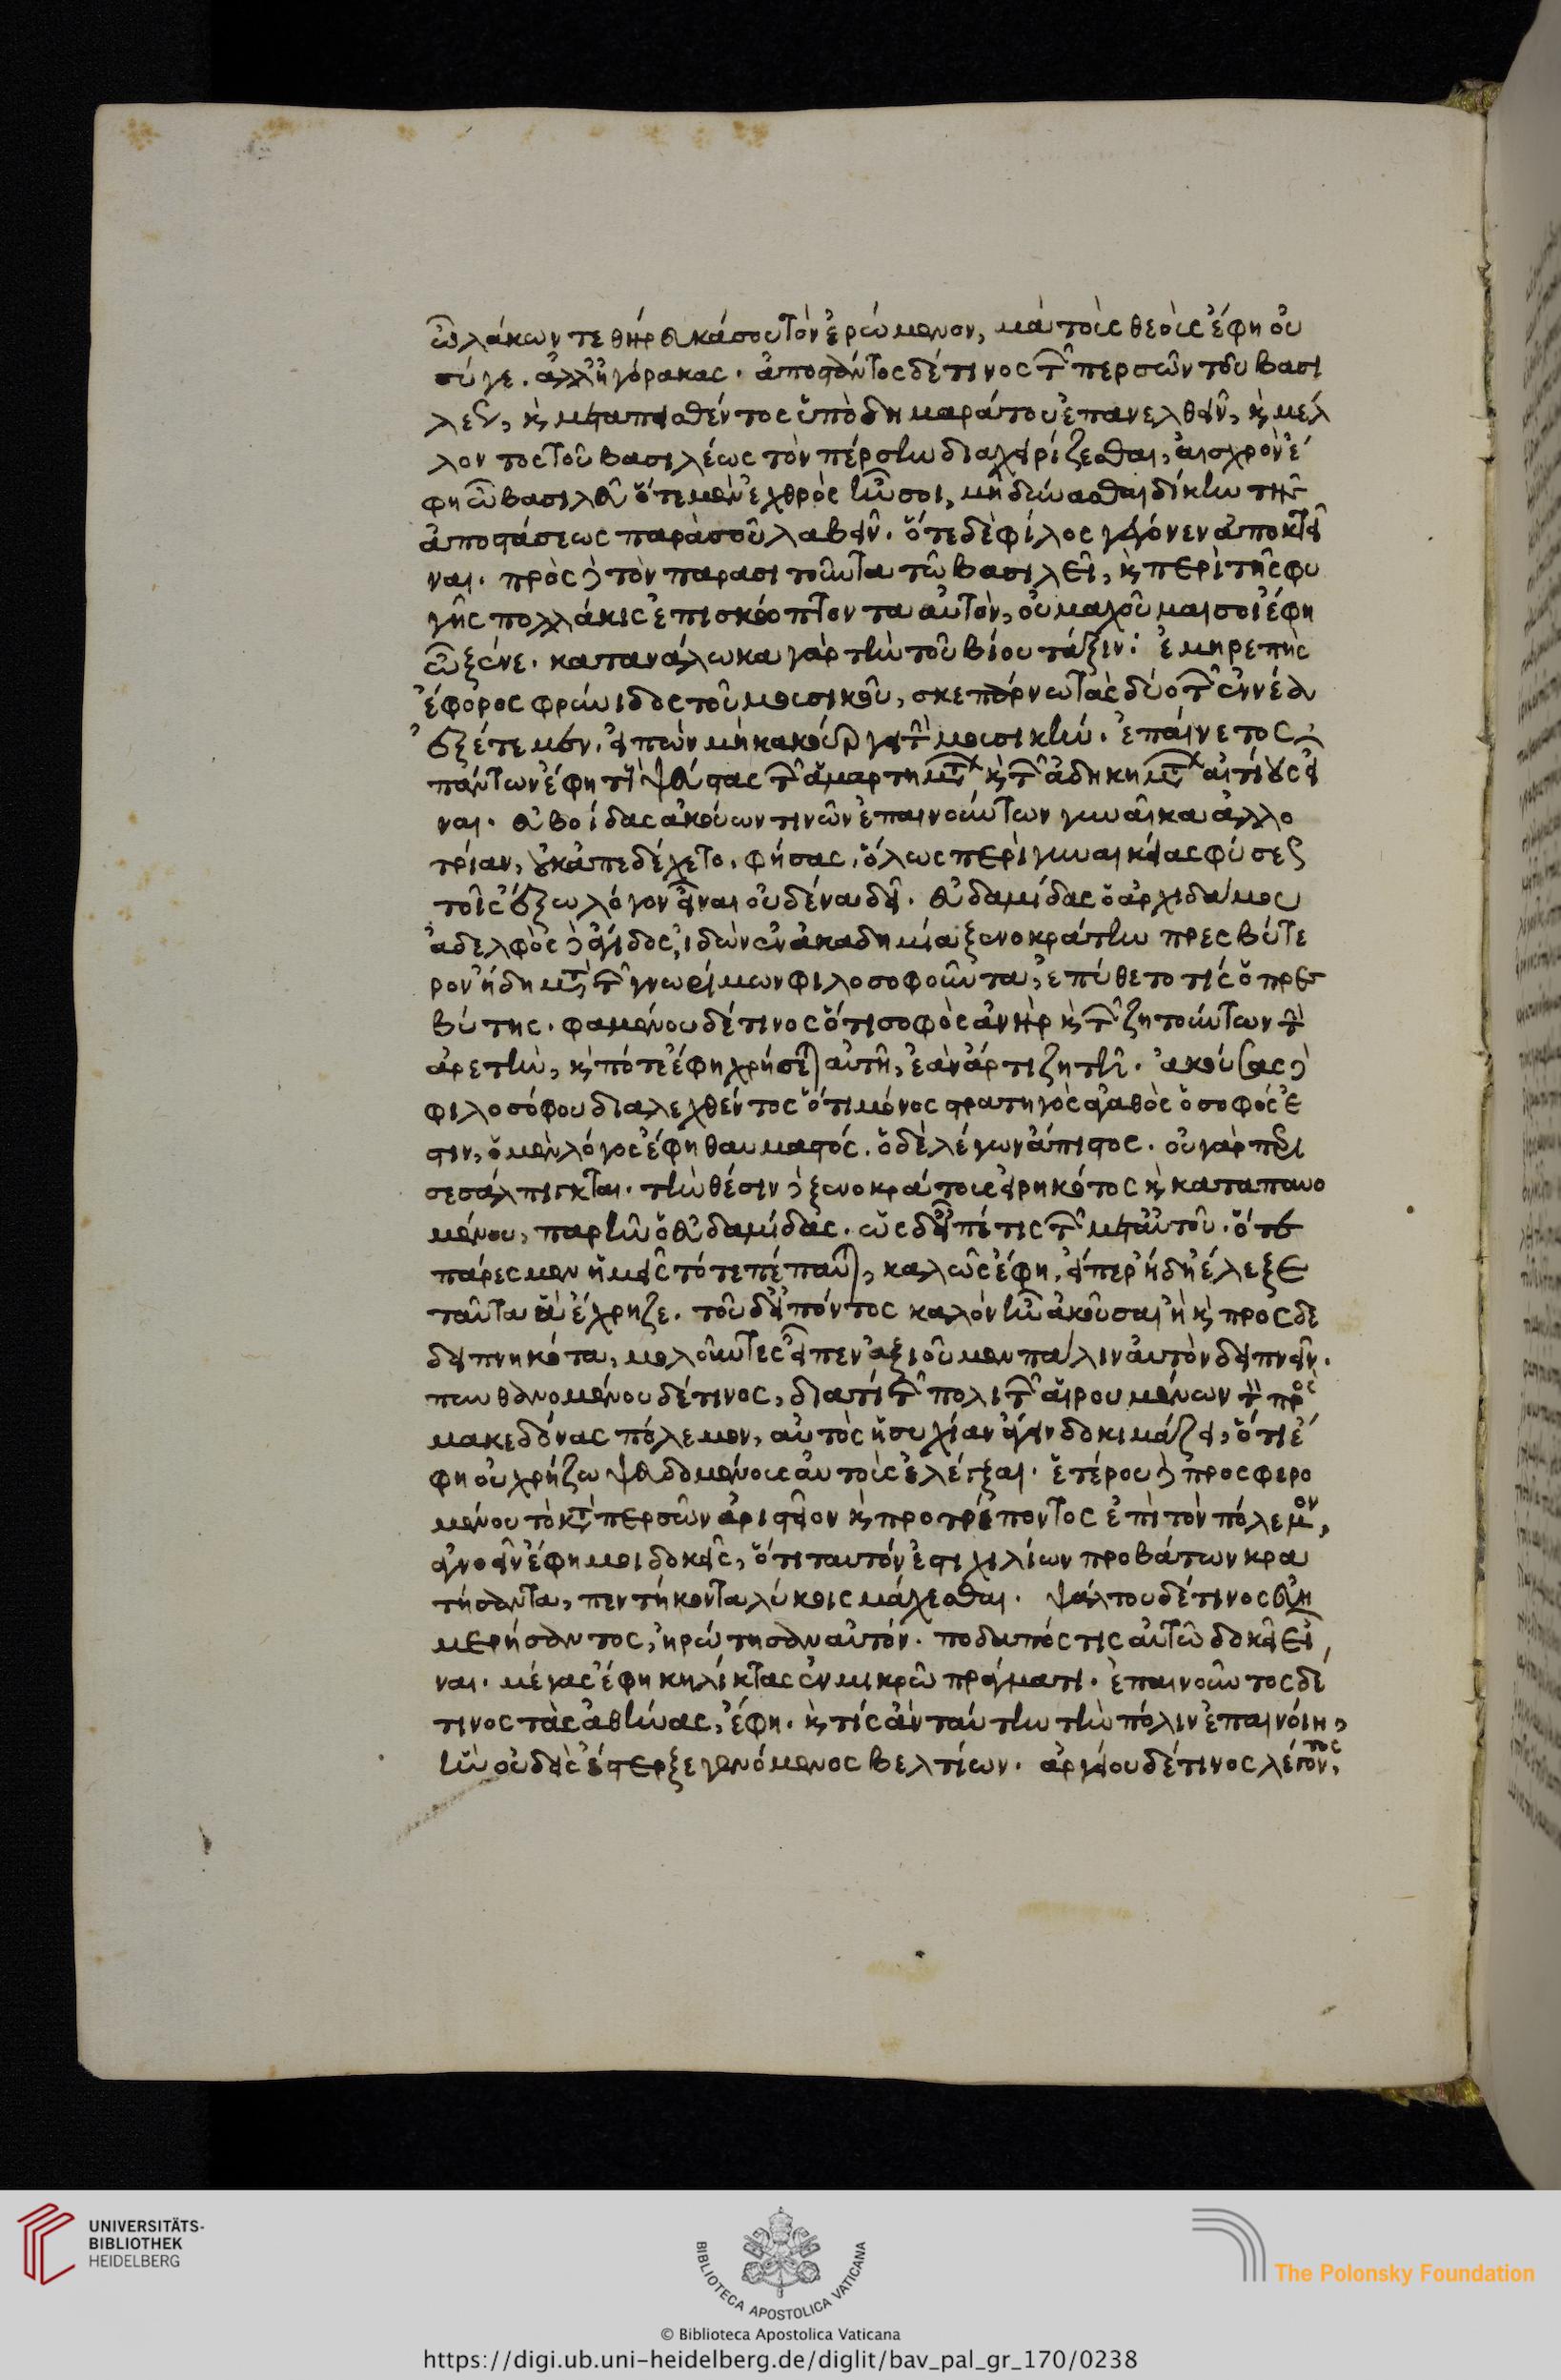 ὦ λάκων τεθήρευκά σου τὸν ἐρώμενον, μὰ τοὺς θεοὺς ἔφη οὐ
σύγε. ἀλλ' ἠγόρακας. ἀποστάντος δέ τινος τῶν περσῶν τοῦ βασι
λέως, καὶ μεταπεισθέντος ὑπὸ δημαράτου ἐπανελθεῖν, καὶ μέλ
λοντος τοῦ βασιλέως τὸν πέρσην διαχειρίζεσθαι, αἰσχρὸν ἔ
φη ὦ βασιλεῦ ὅτε μὲν ἐχθρὸς ἦν σοι, μὴ δύνασθαι δίκην τῆς
ἀποστάσεως παρὰ σοῦ λαβεῖν. ὅτε δὲ φίλος γέγονεν ἀποκτεῖ
ναι. πρὸς δὲ τὸν παρασιτοῦντα τῷ βασιλεῖ, καὶ περὶ τῆς φυ
γῆς πολλάκις ἐπισκώπτοντα αὐτὸν, οὐ μαχοῦμαι σοι ἔφη
ὦ ξένε. καταναλωκα γὰρ τὴν τοῦ βίου τάξιν: ἐμηρεπὴς
ἔφορος φρύνιδος τοῦ μουσικοῦ, σκεπάρνῳ τὰς δύο τῶν ἐννέα
ἐξέτεμεν. εἰπὼν μὴ κακούργει τὴν μουσικήν. ἐπαίνετος
πάντων ἔφη τοὺς ψεύστας τῶν ἁμαρτημάτων καὶ τῶν ἀδηκημάτων αἰτίους εἶ
ναι. εὐβοίδας ἀκούων τινῶν ἐπαινούντων γυναῖκα ἀλλο
τρίαν, οὐκ ἀπεδέχετο. φήσας, ὅλως περὶ γυναικείας φύσεως
τοῖς ἔξω λόγον εἶναι οὐδένα δεῖ. εὐδαμίδας ὁ ἀρχιδάμου
ἀδελφὸς δὲ ἄγιδος, ἰδὼν ἐν ἀκαδημία ξενοκράτην πρεσβύτε
ρον ἤδη μετὰ τῶν γνωρίμων φιλοσοφοῦντα, ἐπύθετο τίς ὁ πρεσ
βύτης. φαμένου δέ τινος ὅτι σοφὸς ἀνὴρ καὶ τῶν ζητούντων τὴν
ἀρετὴν, καὶ πότε ἔφη χρήσεται αὐτῇ, ἐὰν ἄρτι ζητῇ. ἀκούσας δὲ
φιλοσόφου διαλεχθέντος ὅτι μόνος στρατηγὸς ἀγαθὸς ὁ σοφός ἐ
στιν, ὁ μὲν λόγος ἔφη θαυμαστός. ὁ δὲ λέγων ἄπιστος. οὐ γὰρ περι
σεσάλπιγκται. τὴν θέσιν δὲ ξενοκράτους εἰρηκότος καὶ καταπαυο
μένου, παρῆν ὁ εὐδαμίδας. ὡς δ' εἶπέ τις τῶν μετ' αὐτοῦ. ὅτε
πάρεσμεν ἡμεῖς τότε πέπαυται, καλῶς ἔφη, εἴπερ ἤδη ἔλεξε
ταῦτα ἃ ἔχρηζε. τοῦ δ' εἰπόντος καλὸν ἦν ἀκοῦσαι, ἢ καὶ προς δε
δειπνηκότα, μολοῦντες εἶπεν ἀξιοῦμεν πάλιν αὐτὸν δειπνεῖν.
πυνθανομένου δέ τινος, διατί τῶν πολιτῶν αἱρουμένων τὸν πρὸς
μακεδόνας πόλεμον, αὐτὸς ἡσυχίαν ἄγειν δοκιμάζει, ὅτι ἔ
φη οὐ χρήζω ψευδομένους αὐτοὺς ἐλέγξαι. ἑτέρου δὲ προσφερο
μένου τὸ κατὰ περσῶν ἀριστεῖον καὶ προτρέποντος ἐπὶ τὸν πόλεμον,
ἀγνοεῖν ἔφη μοι δοκεῖς, ὅτι ταυτόν ἐστι χιλίων προβάτων κρα
τήσαντα, πεντήκοντα λύκοις μάχεσθαι. ψάλτου δέ τινος εὐη
μερήσαντος, ἠρώτησαν αὐτόν. ποδαπός τις αὐτῷ δοκεῖ εἶ
ναι. μέγας ἔφη κηλίκτας ἐν μικρῷ πράγματι. ἐπαινοῦντος δέ
τινος τὰς ἀθήνας, ἔφη. καὶ τίς ἂν ταύτην τὴν πόλιν ἐπαινοίη,
ἣν οὐδεὶς ἔστερξε γενόμενος βελτίων. ἀργείου δέ τινος λέγοντος,
UNIVERSITÄTS-
BIBLIOTHEK
HEIDELBERG
BIBLIOTECA APOSTOLICA VATICANA
The Polonsky Foundation
© Biblioteca Apostolica Vaticana
https://digi.ub.uni-heidelberg.de/diglit/bav_pal_gr_170/0238